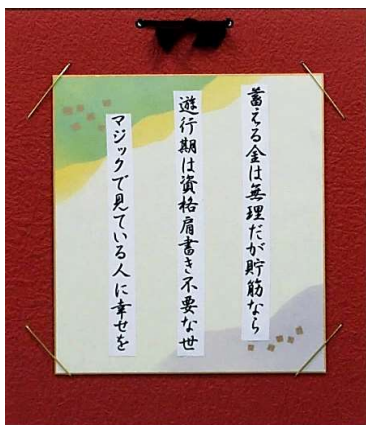 蓄える金は無理だが貯筋なら
遊行期は資格肩書き不要な世
マジックで見ている人に幸せを